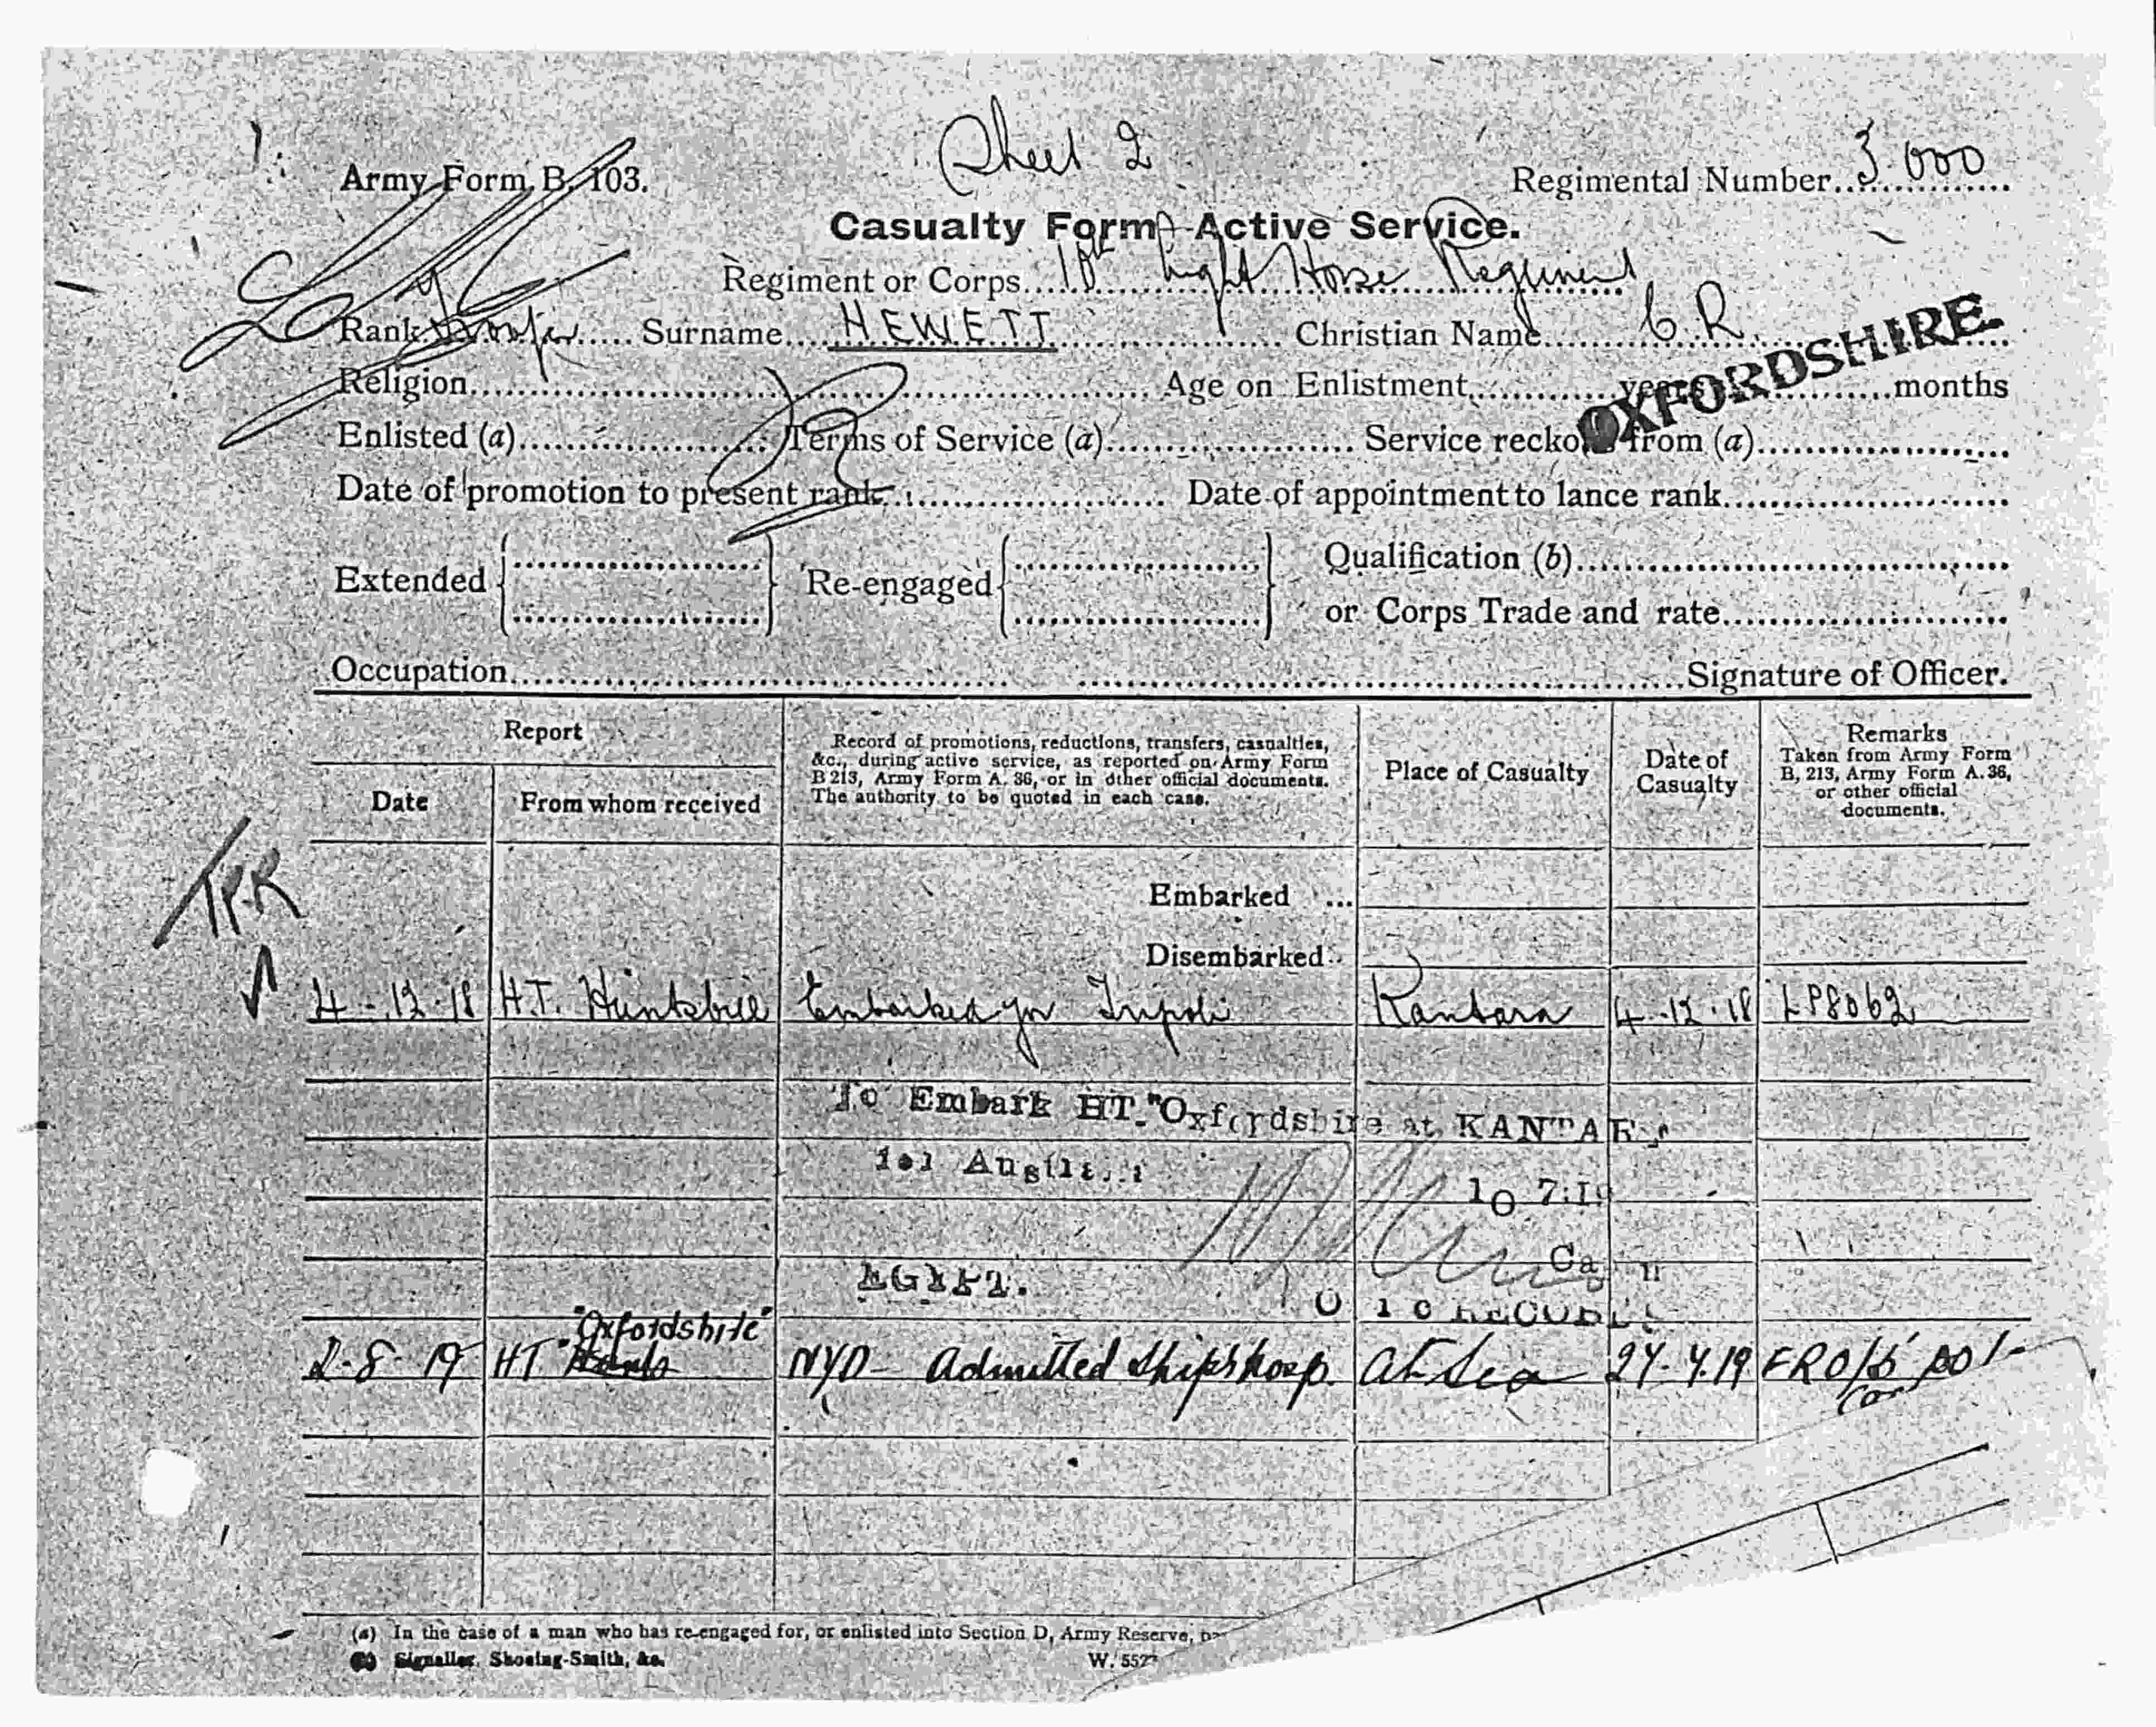 Sheet 2
Army Form B. 103.
Regimental Number 3000
Casualty Form—Active Service.
Regiment or Corps 10th Light Horse Regiment
Rank Trooper Surname HEWETT Christian Name C.R.
OXFORDSHIRE.
Religion Age on Enlistment years months
Enlisted (a) Terms of Service (a) Service reckons from (a)
Date of promotion to present rank Date of appointment to lance rank
Extended Re-engaged Qualification (b)
or Corps Trade and rate
Occupation Signature of Officer.
Report
Date
From whom received
Record of promotions, reductions, transfers, casualties,
&c., during active service, as reported on Army Form
B 213, Army Form A. 36, or in other official documents.
The authority to be quoted in each case.
Place of Casualty
Date of
Casualty
Remarks
Taken from Army Form
B. 213, Army Form A. 36,
or other official
documents.
TPR
Embarked ...
Disembarked
4-12-18 H.T. Embarked for Tripoli Kantara 4-12-18 LP8062
To Embark HT "Oxfordshire at KANTARA
10 7.19
EGYPT.
O i c RECORDS
"Oxfordshire"
2-8-19 HT NYD - Admitted Ships hosp. At Sea 27.7.19
(a) In the case of a man who has re-engaged for, or enlisted into Section D, Army Reserve,
(b) Signaller, Shoeing-Smith, &c.
W. 552